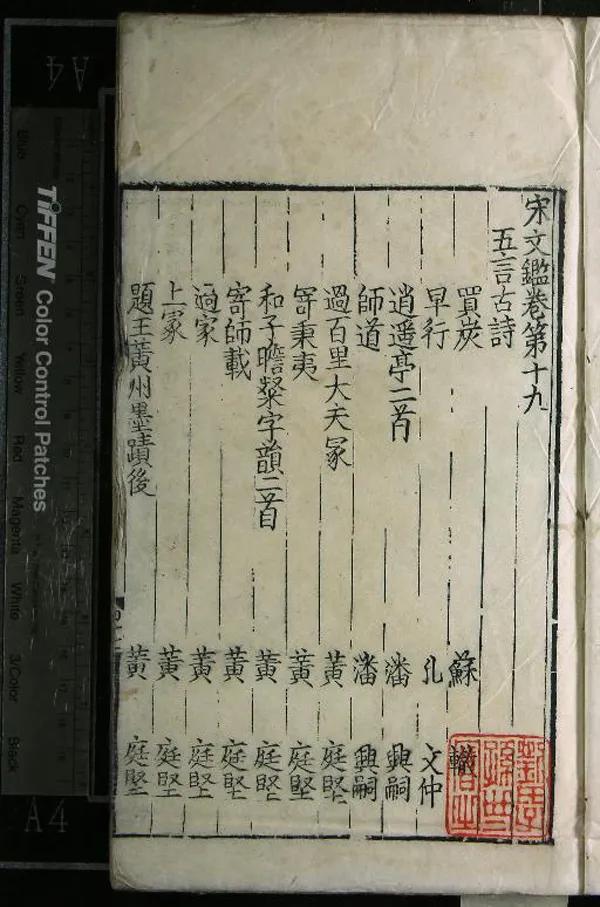 宋文鑑卷第十九
五言古詩
買炭 蘇 轍
早行 孔 文仲
逍遥亭二首 潘 興嗣
師道 潘 興嗣
過百里大夫冢 黄 庭堅
寄秉夷 黄 庭堅
和子瞻粲字韻二首 黄 庭堅
寄師載 黄 庭堅
過家 黄 庭堅
上冢 黄 庭堅
題王黄州墨蹟後 黄 庭堅
A4
TIFFEN Color Control Patches
Blue
Cyan
Green
Yellow
Red
Magenta
White
3/Color
Black
A4